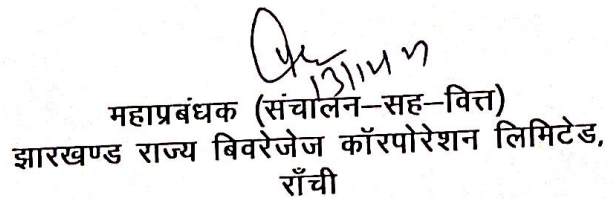 महाप्रबंधक (संचालन–सह–वित्त)
झारखण्ड राज्य बिवरेजेज कॉरपोरेशन लिमिटेड,
राँची